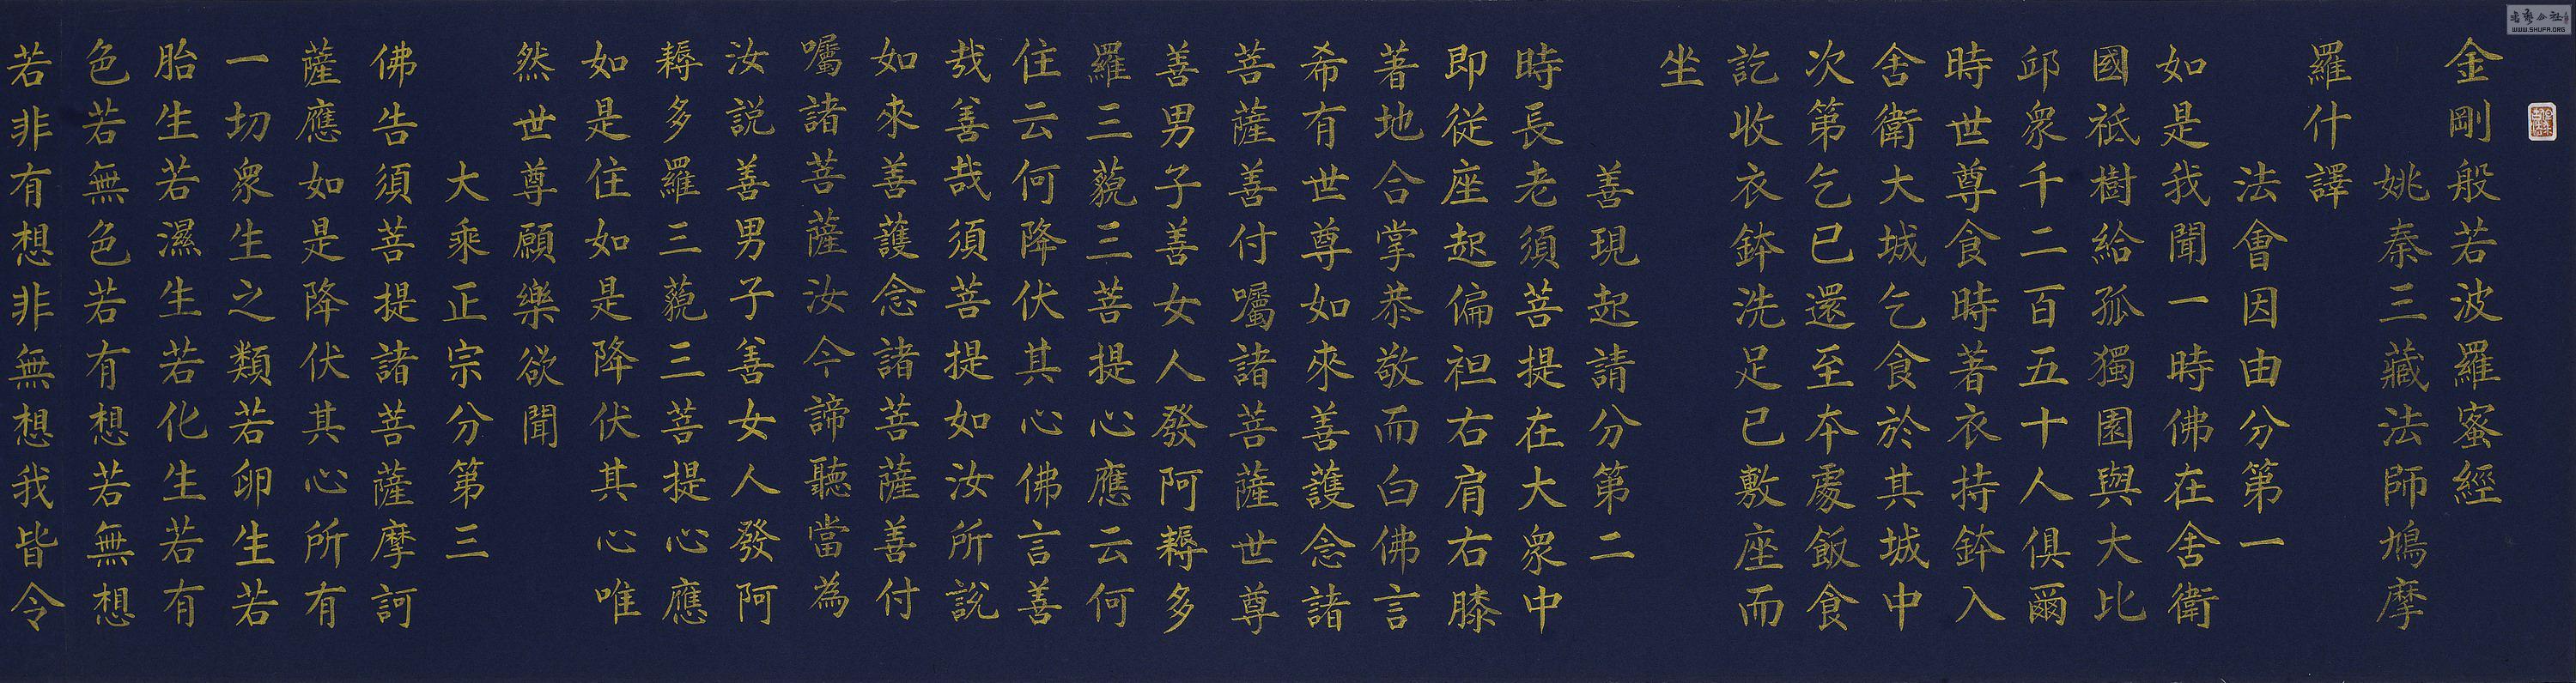 金剛般若波羅蜜經
姚秦三藏法師鳩摩
羅什譯
法會因由分第一
如是我聞一時佛在舍衛
國祇樹給孤獨園與大比
邱衆千二百五十人俱爾
時世尊食時著衣持鉢入
舍衛大城乞食於其城中
次第乞已還至本處飯食
訖收衣鉢洗足已敷座而
坐
善現起請分第二
時長老須菩提在大衆中
即從座起偏袒右肩右膝
著地合掌恭敬而白佛言
希有世尊如來善護念諸
菩薩善付囑諸菩薩世尊
善男子善女人發阿耨多
羅三藐三菩提心應云何
住云何降伏其心佛言善
哉善哉須菩提如汝所說
如來善護念諸菩薩善付
囑諸菩薩汝今諦聽當為
汝說善男子善女人發阿
耨多羅三藐三菩提心應
如是住如是降伏其心唯
然世尊願樂欲聞
大乘正宗分第三
佛告須菩提諸菩薩摩訶
薩應如是降伏其心所有
一切衆生之類若卵生若
胎生若濕生若化生若有
色若無色若有想若無想
若非有想非無想我皆令
WWW.SHUFA.ORG